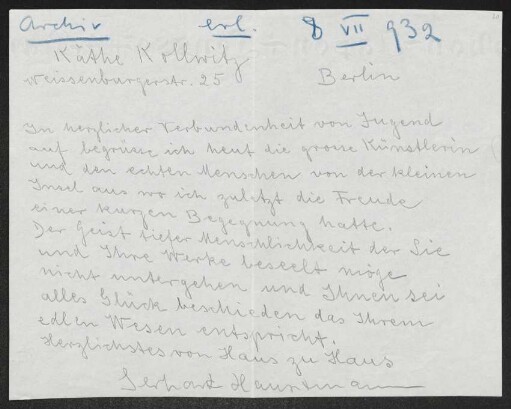 Archiv erl. 8 VII 932
Käthe Kollwitz
Weissenburgerstr. 25 Berlin
In herzlicher Verbundenheit von Jugend
auf begrüsse ich heut die grosse Künstlerin
und den echten Menschen von der kleinen
Insel aus wo ich zuletzt die Freude
einer kurzen Begegnung hatte.
Der Geist tiefer Menschlichkeit der Sie
und Ihre Werke beseelt möge
nicht untergehen und Ihnen sei
alles Glück beschieden das Ihrem
edlen Wesen entspricht.
Herzlichstes von Haus zu Haus
Gerhart Hauptmann